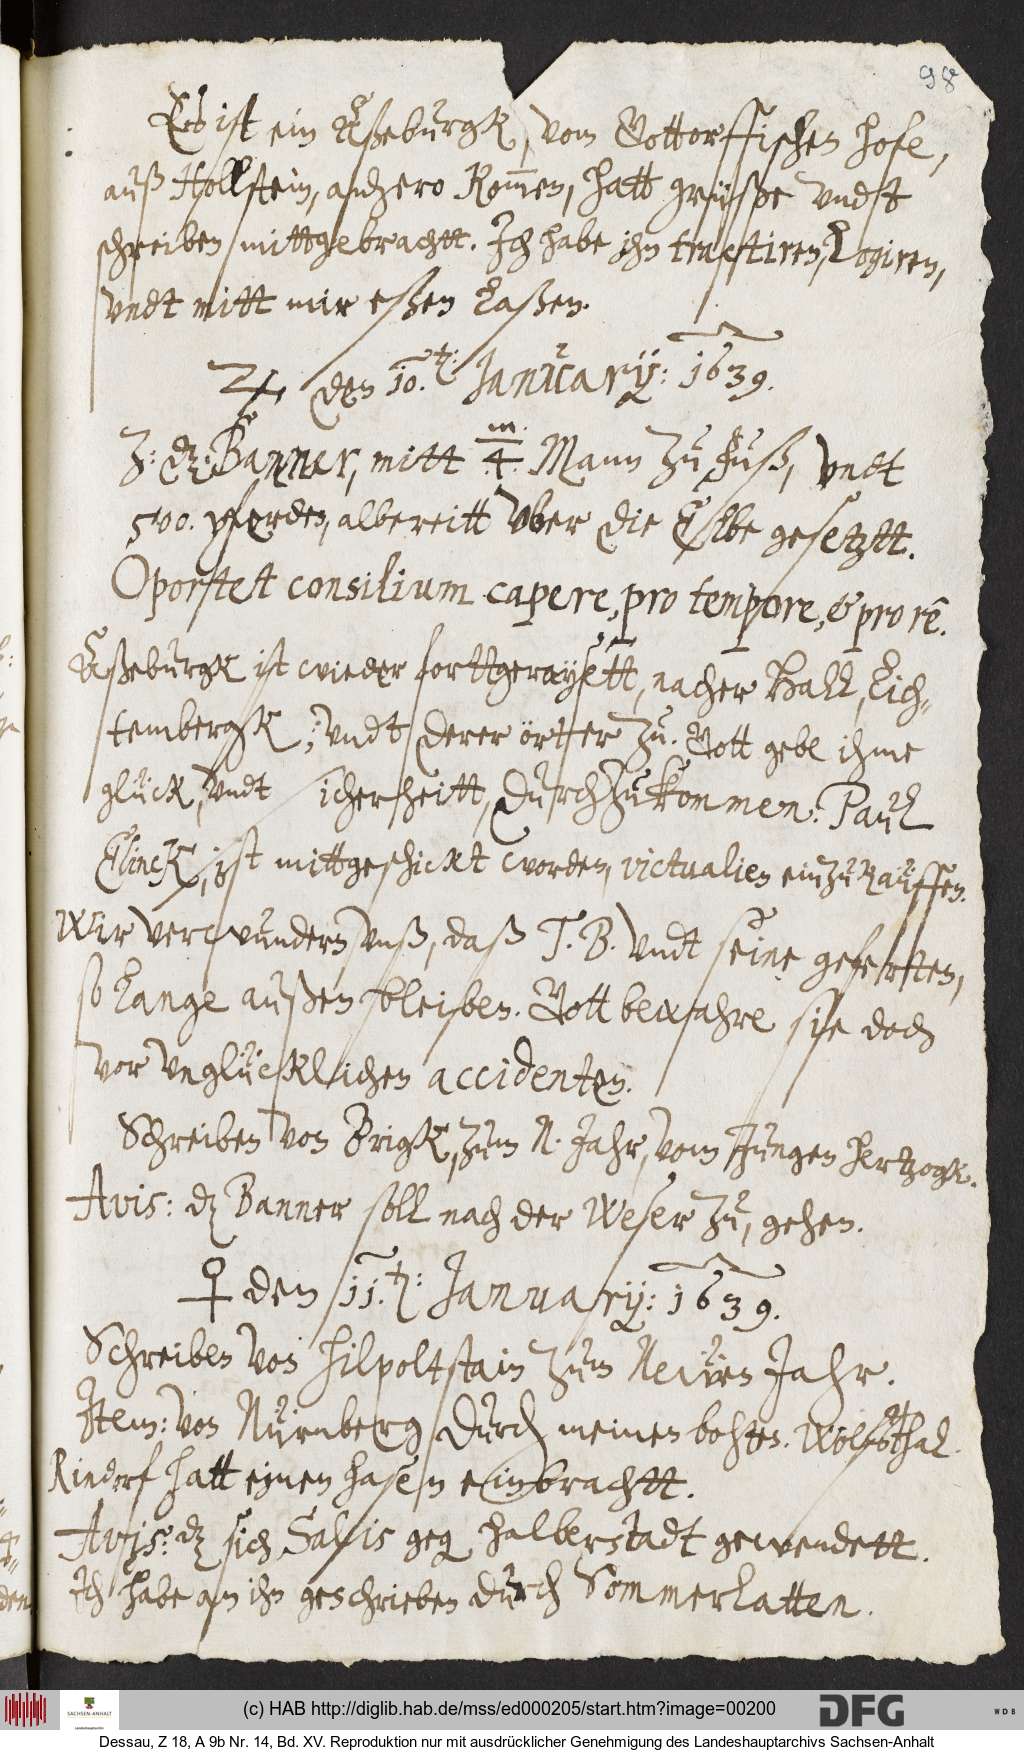 98
Es ist ein Aßeburgk, vom Gottorffischen hofe,
auß Hollstein, anhero kommen, hatt grüße vndt
schreiben mittgebrachtt. Ich habe ihn tractiren, Logiren,
vndt mitt mir eßen laßen.
♃ den 10. t: January: 1639.
Z: dz: Banner, mitt m/4. Mann zu Fuß, vndt
500. pferden, albereitt vber die Elbe gesetztt.
Oportet consilium capere, pro tempore, & pro rē.
Aßeburgk ist wieder forttgeraysett, nacher Hall, Lich-
tembergk, vndt derer örtter zu. Gott gebe ihme
glück, vndt sicherheitt, durchzukommen. Paul
ist mittgeschickt worden, victualien einzukauffen.
Wir verwundern vnß, daß T. B. vndt seine geferten,
so lange außen bleiben. Gott bewahre sie doch
vor vnglücklichen accidenten.
Schreiben von Brigk, zum N. Jahr, vom Jungen hertzogk.
Avis: dz Banner soll nach der Weser zu, gehen.
♀ den 11. t: January: 1639.
Schreiben von Hilpoltstain zum Neuen Jahr.
Item: von Nürnberg durch meinen bohten. Wolfsthal.
Rindorf hatt einen hasen einbrachtt.
Avis: dz sich Salis geg halberstadt gewendett.
Ich habe an ihn geschrieben durch Sommerlatten.
(c) HAB http://diglib.hab.de/mss/ed000205/start.htm?image=00200
SACHSEN-ANHALT
DFG
WDB
Dessau, Z 18, A 9b Nr. 14, Bd. XV. Reproduktion nur mit ausdrücklicher Genehmigung des Landeshauptarchivs Sachsen-Anhalt